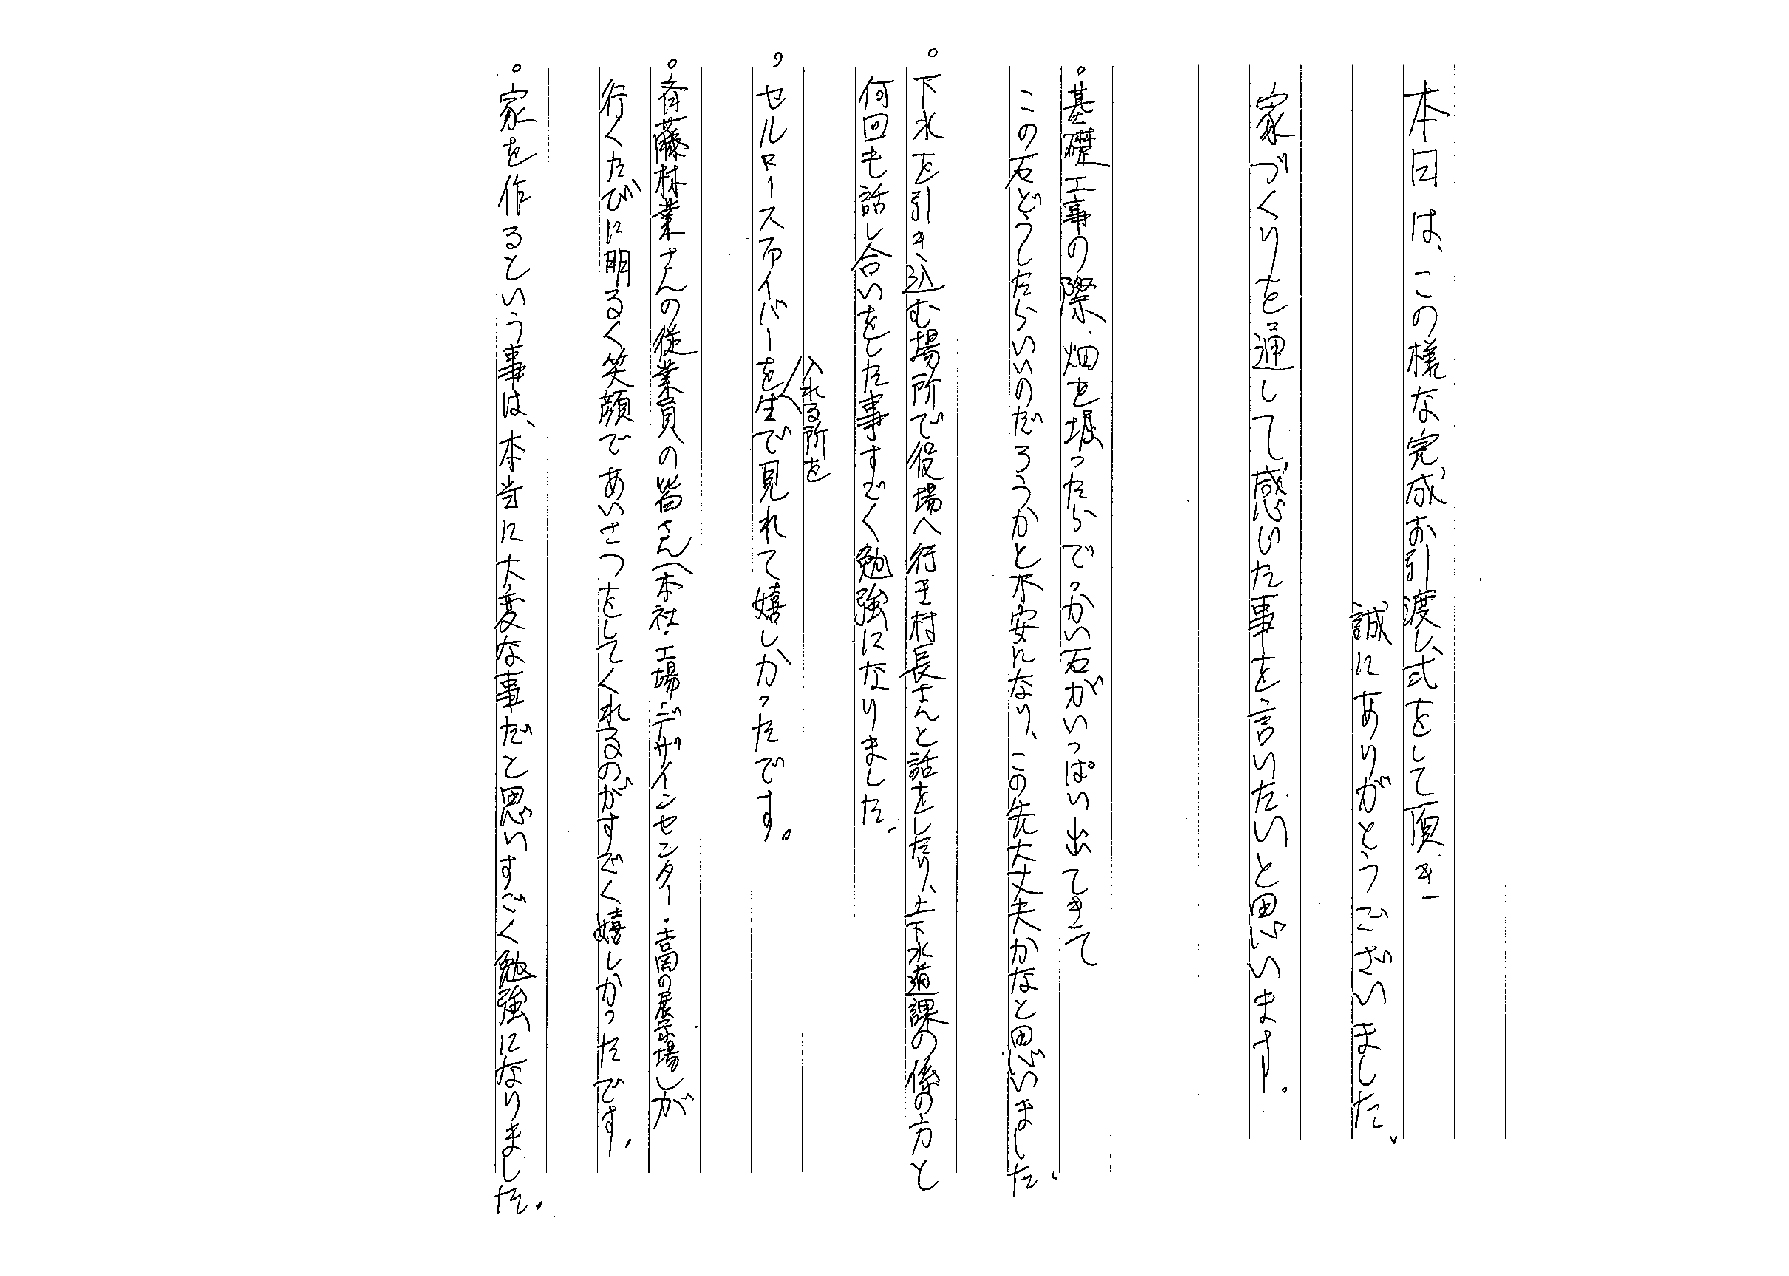 本日は、この様な完成お引渡し式をして頂き
誠にありがとうございました。
家づくりを通して感じた事を言いたいと思います。
。基礎工事の際、畑を堀ったらでっかい石がいっぱい出てきて
この石どうしたらいいのだろうかと不安になり、この先大丈夫かなと思いました。
。下水を引き込む場所で役場へ行き村長さんと話をしたり、上下水道課の係の方と
何回も話し合いをした事すごく勉強になりました。
。セルロースファイバーを入れる所を生で見れて嬉しかったです。
。斉藤林業さんの従業員の皆さん(本社・工場・デザインセンター・吉岡の展示場)が
行くたびに明るく笑顔であいさつをしてくれるのがすごく嬉しかったです。
。家を作るという事は、本当に大変な事だと思いすごく勉強になりました。